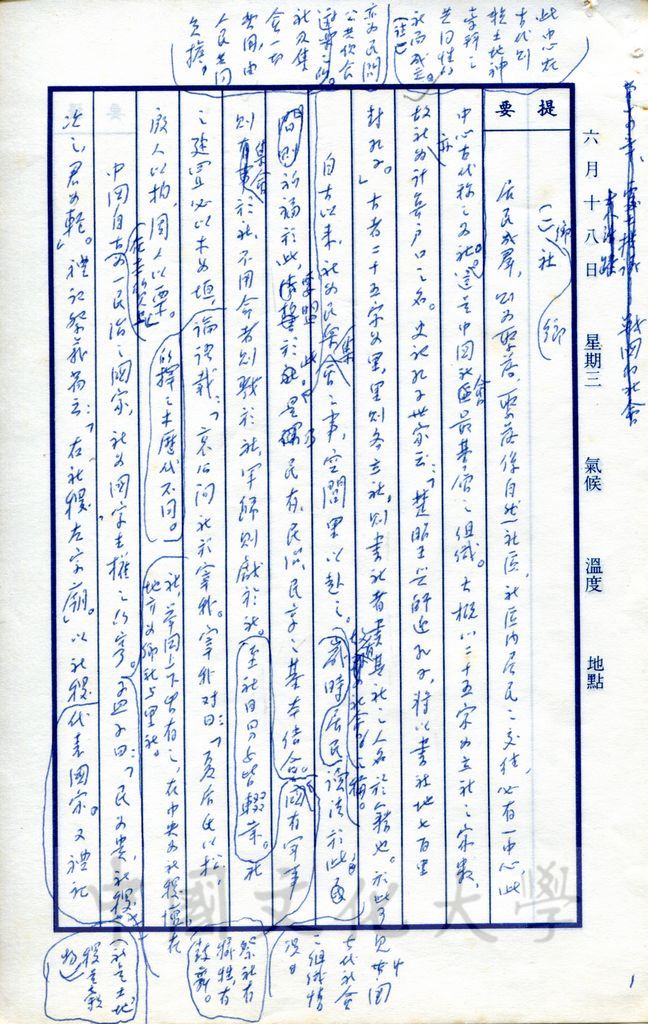 六月十八日 星期三 氣候 溫度 地點
提要
(一)社 鄉
居民成羣,以為聚落,聚落係自然社區,社區內居民之交往,必有一中心,此
中心古代稱之為社。這是中國社會最基層之組織。大概以二十五家為立社之家數,
故社為計算戶口之名。史記孔子世家云:「楚昭王興師迎孔子,將以書社地七百里
封孔子。」古者二十五家為里,里則各立社,則書社者書其社之人名於籍也。於此可見中國
古代社會之組織情
自古以來,社為民眾集會之事,空閭里以赴之。歲時居民讀法於此
祈福於此,是民有、民治、民享之基本結合。國有軍事
則有事於社,不用命者則戮於社,軍歸則獻於社。至社日男女皆輟業。社
祭社有犧牲,有鼓舞。
之建置必以木為壇,論語載:「哀公問社於宰我。宰我對曰:「夏后氏以松,
殷人以柏,周人以栗。所擇之木歷代不同。
社,舉國上下皆有之,在中央為社稷壇在
地方為鄉社與里社。
中國自古為一民治之國家,社為國家主權之所寄。孟子曰:「民為貴,社稷
次之,君為輕。」禮記祭義篇云:「右社稷,左宗廟。」以社稷代表國家。又禮記
社是土地,稷是穀物
此中心在古代則
社而成立。
亦為民間公共飲會
社及集會一切費用,由人民共同負擔。
中國文化大學
1